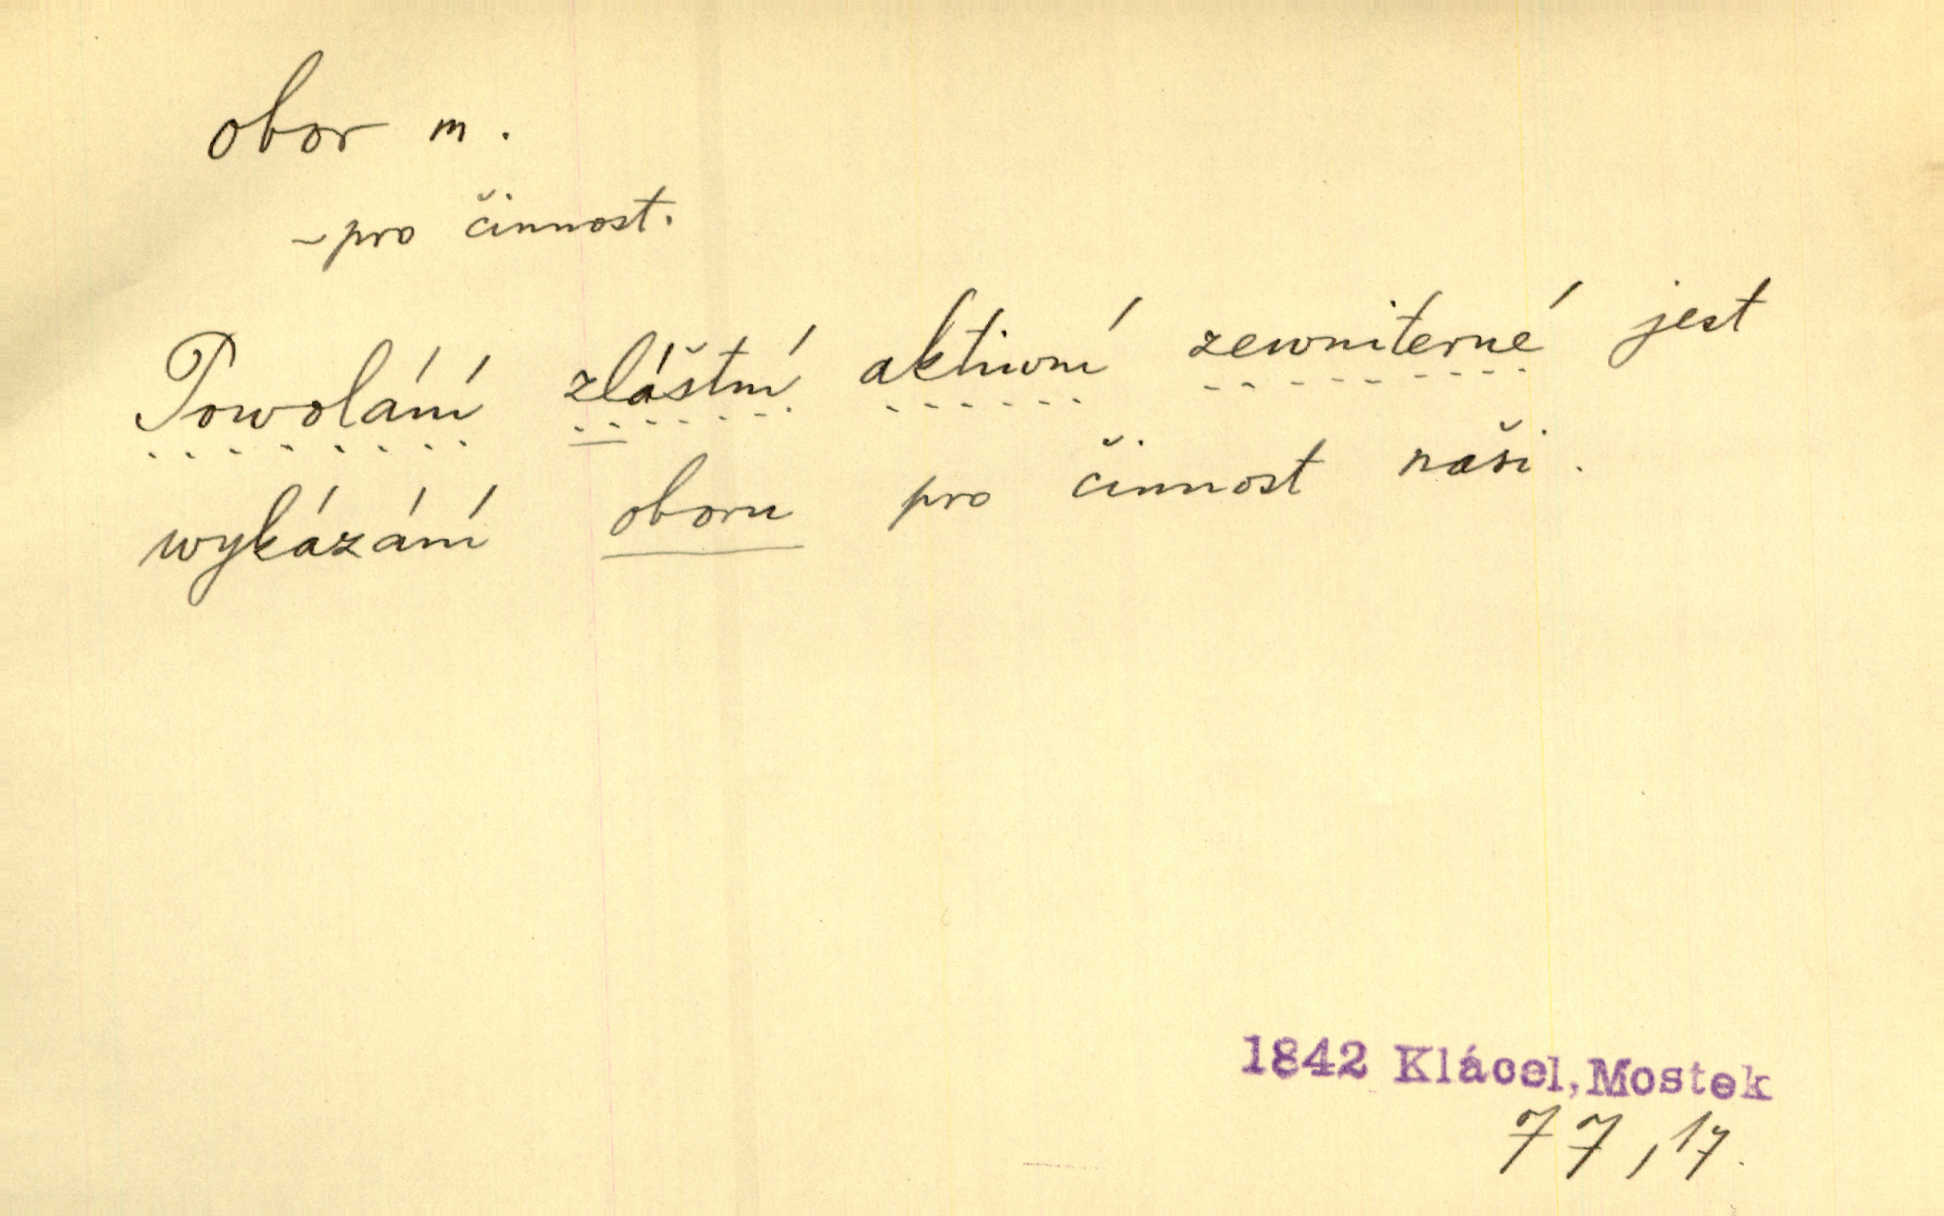 obor m.
~pro činnost.
Powolání zláštní aktivní zewniterné jest
wykázání oboru pro činnost naši.
1842 Klácel, Mostek
77, 17.